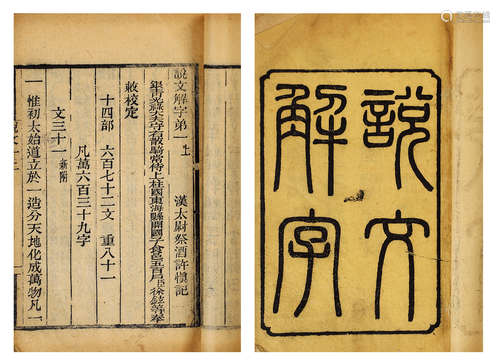 說文解字弟一上
漢太尉祭酒許慎記
銀青光祿大夫守右散騎常侍上柱國東海縣開國子食邑五百戶臣徐鉉等奉
敕校定
十四部 六百七十二文 重八十一
凡萬六百三十九字
文三十一新附
一惟初太始道立於一造分天地化成萬物凡一
說文
解字